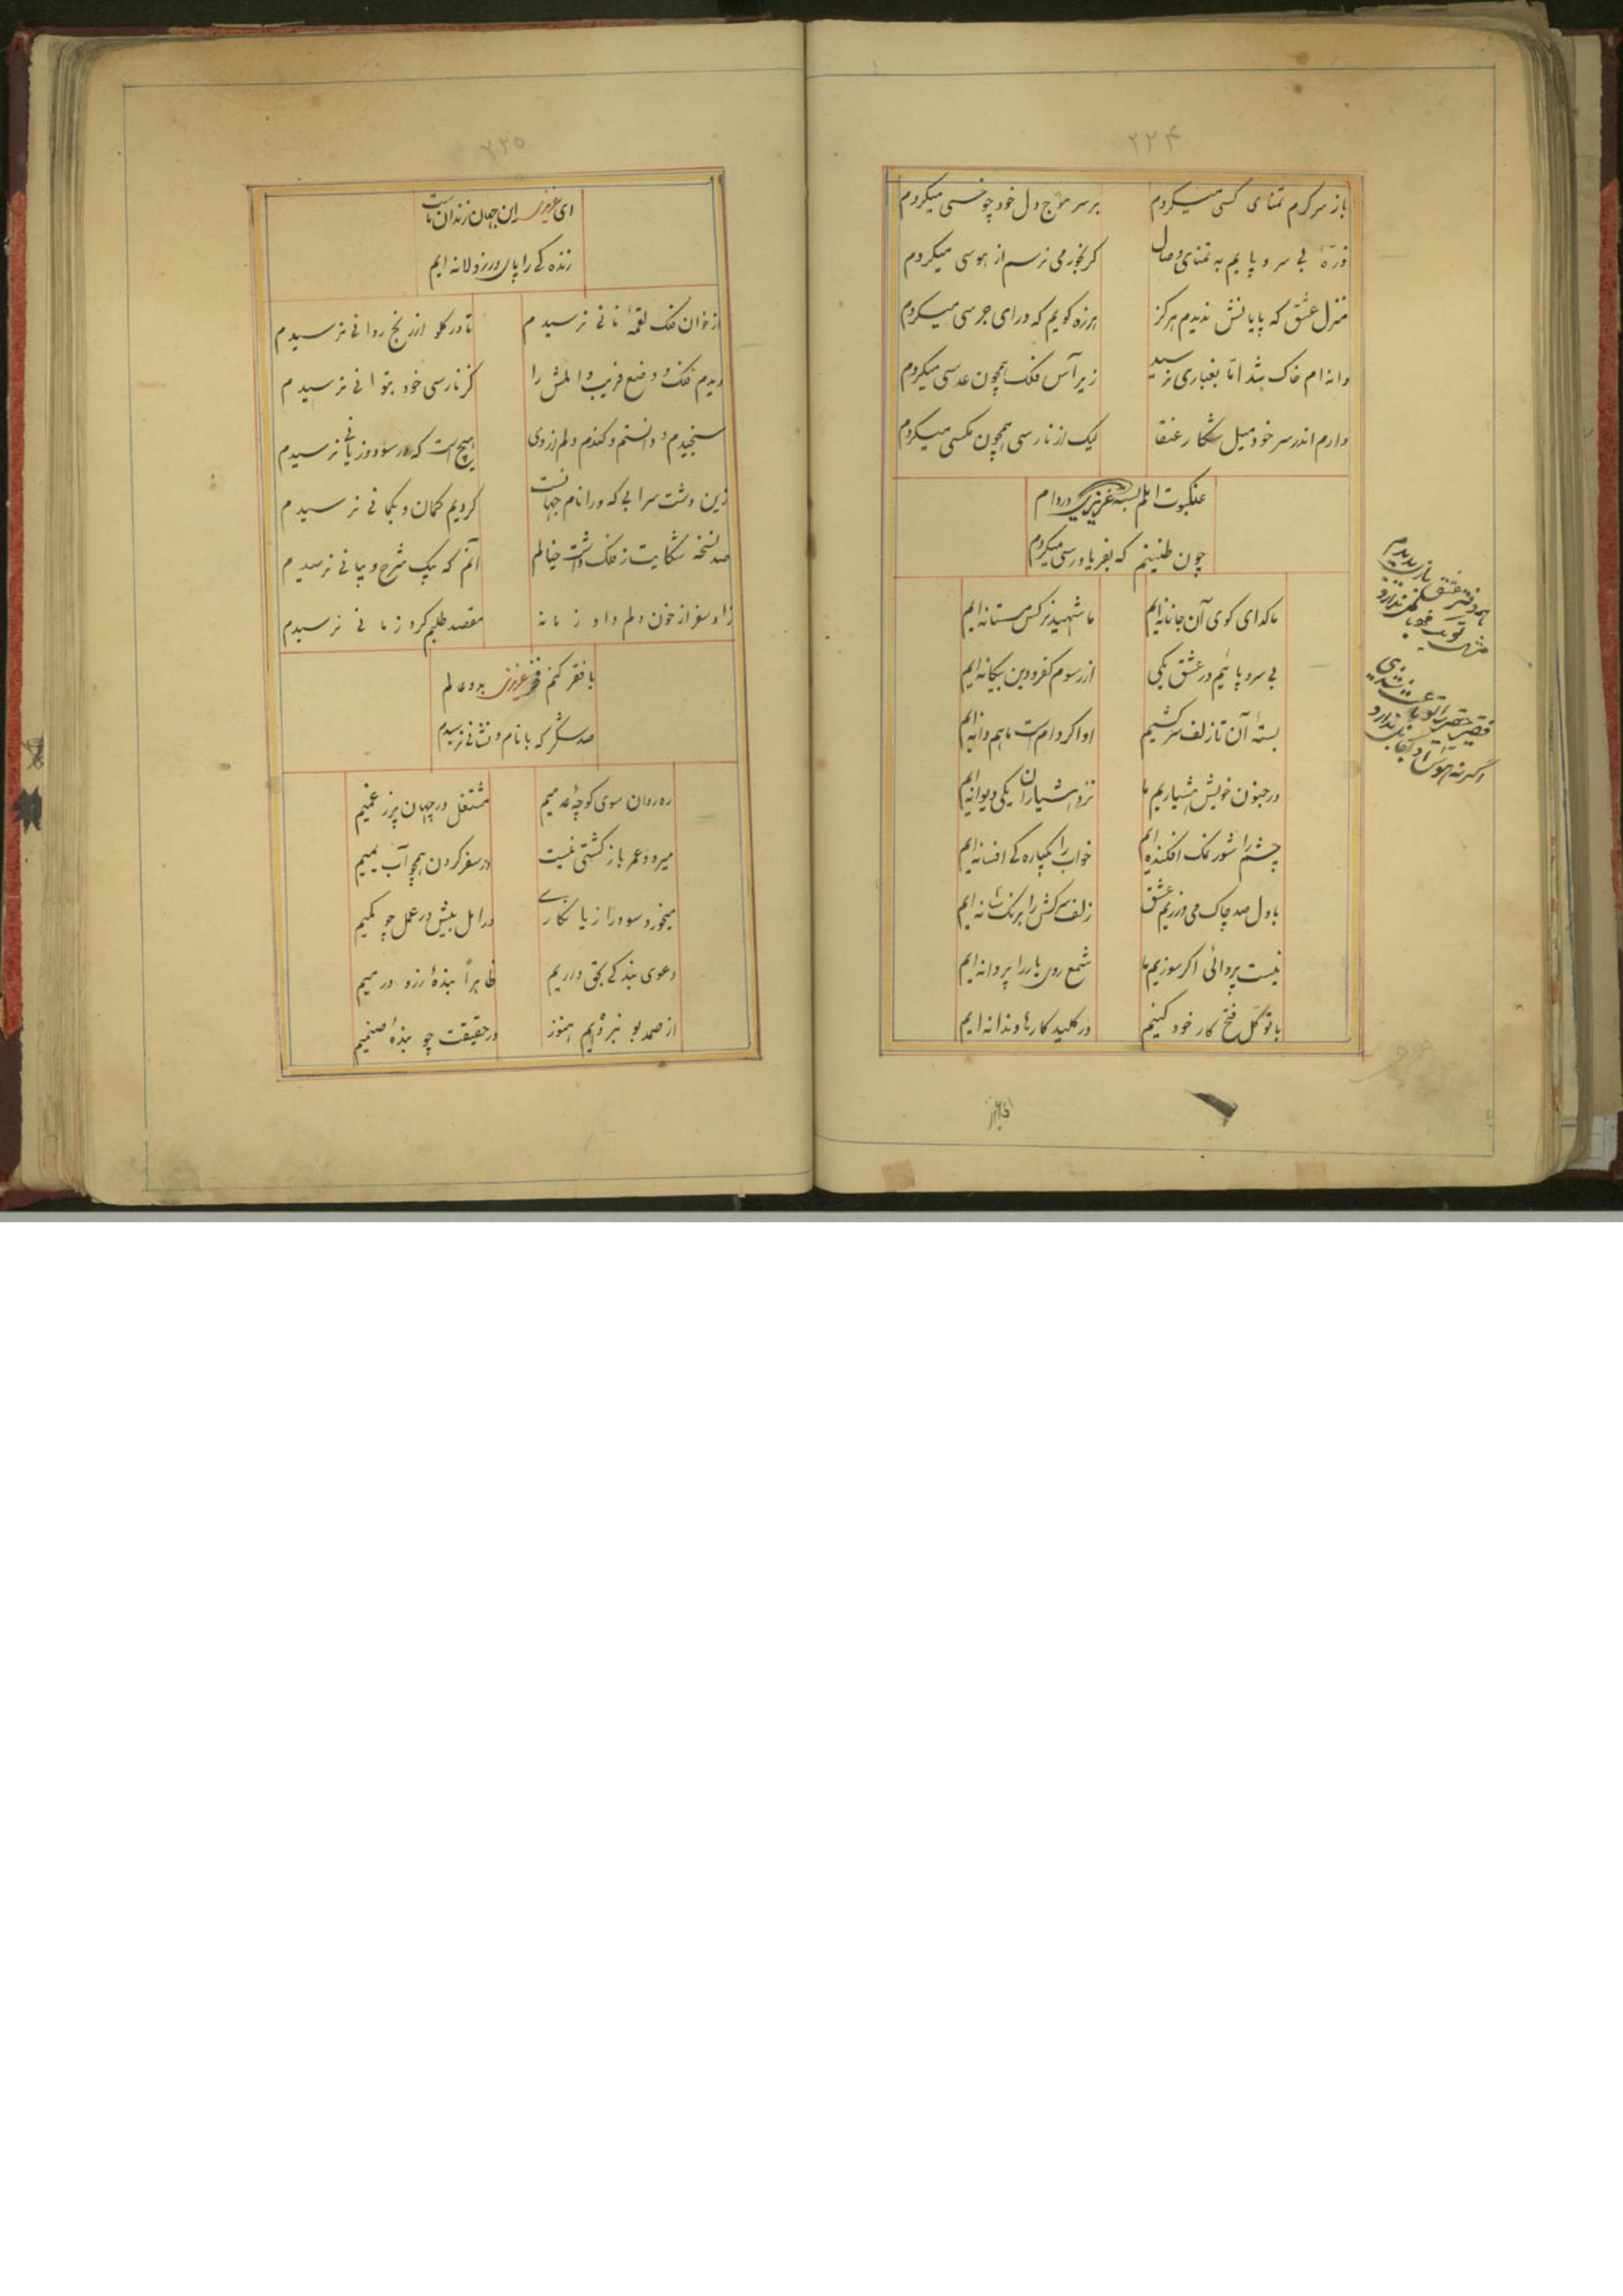 ۲۲۴
باز سرکرم تمنای کسی میکردم
بر سر موج دل خود چو خسی میکردم
ذرهٔ بی سر و پایم به تمنای وصال
کر بخور می نرسم از هوسی میکردم
منزل عشق که پایانش ندیدم هرکز
هرزه کویم که درای جرسی میکردم
دانه ام خاک شد اما بغباری نرسید
زیر آس فلک همچون عدسی میکردم
دارم اندر سر خود میل شکار عنقا
لیک از نارسی همچون مکسی میکردم
عنکبوت املم بسته عزیزی در دام
چون طنینم که بفریادرسی میکردم
ما کدای کوی آن جانانه ایم
ما شهید نرکس مستانه ایم
بی سر و پائیم در عشق یکی
از رسوم کفر و دین بیکانه ایم
بستهٔ آن تار زلف سرکشیم
او اکر دام است ما هم دانه ایم
در جنون خویش هشیاریم ما
نزد هشیاران یکی دیوانه ایم
چشم را شور نمک افکنده ایم
خواب را یکباره کی افسانه ایم
با دل صد چاک می ورزیم عشق
زلف سرکش را برنک شانه ایم
نیست پروائی اکر سوزیم ما
شمع روی یار را پروانه ایم
با توکل فتح کار خود کنیم
در کلید کارها دندانه ایم
۲۲۵
ای عزیزی این جهان زندان ماست
زنده کی را پای در زولانه ایم
از خوان فلک لقمهٔ نانی نرسیدم
تا در کلو از رنج روانی نرسیدم
دیدم فلک و وضع فریب و املش را
کز نارسی خود بتوانی نرسیدم
سنجیدم و دانستم و کندم دلم از وی
هیچ است که در سود و زیانی نرسیدم
زین دشت سرابی که ورا نام جهانست
کردیم کمان و بکمانی نرسیدم
صد نسخه شکایت ز فلک داشت خیالم
آنم که بیک شرح و بیانی نرسیدم
زاد سفر از خون دلم داد زمانه
مقصد طلبم کرد زمانی نرسیدم
با فقر کنم فخر عزیزی بدو عالم
صد شکر که با نام و نشانی نرسیدم
ره روان سوی کوچهٔ عدمیم
مشتغل در جهان پر ز غمیم
میرود عمر باز کشتی نیست
در سفر کردن همچو آب یمیم
میخورد سود را زیان کاری
در امل بیش در عمل چو کمیم
دعوی بنده کی بحق داریم
ظاهراً بندهٔ زر و درمیم
از صمد بو نبرده ایم هنوز
در حقیقت چو بندهٔ صنمیم